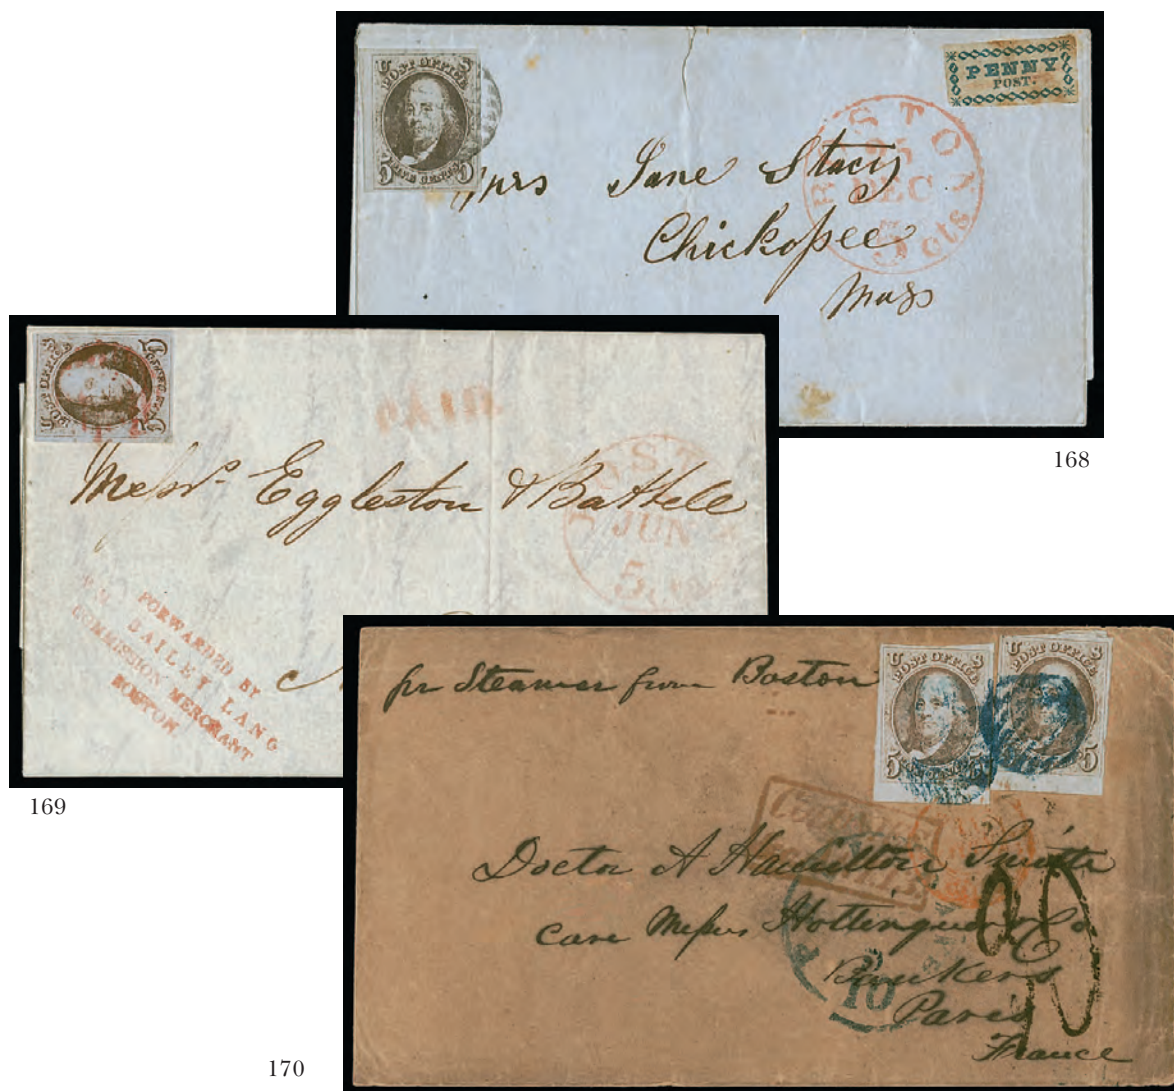 U S
POST OFFICE
5 FIVE CENTS 5
PENNY
POST.
BOSTON
25
DEC
5 cts
Mrs Jane Stacy
Chickopee
Mass
168
U S
POST OFFICE
PAID
Messrs. Eggleston & Battell
JUN
5
FORWARDED BY
BAILEY LANG
COMMISSION MERCHANT
BOSTON
169
pr Steamer from Boston
U S
POST OFFICE
5
U S
POST OFFICE
5
COLONIES
Doctor A Hamilton Smith
care Messrs Hottinguer & Co
Bankers
Paris
France
10
170